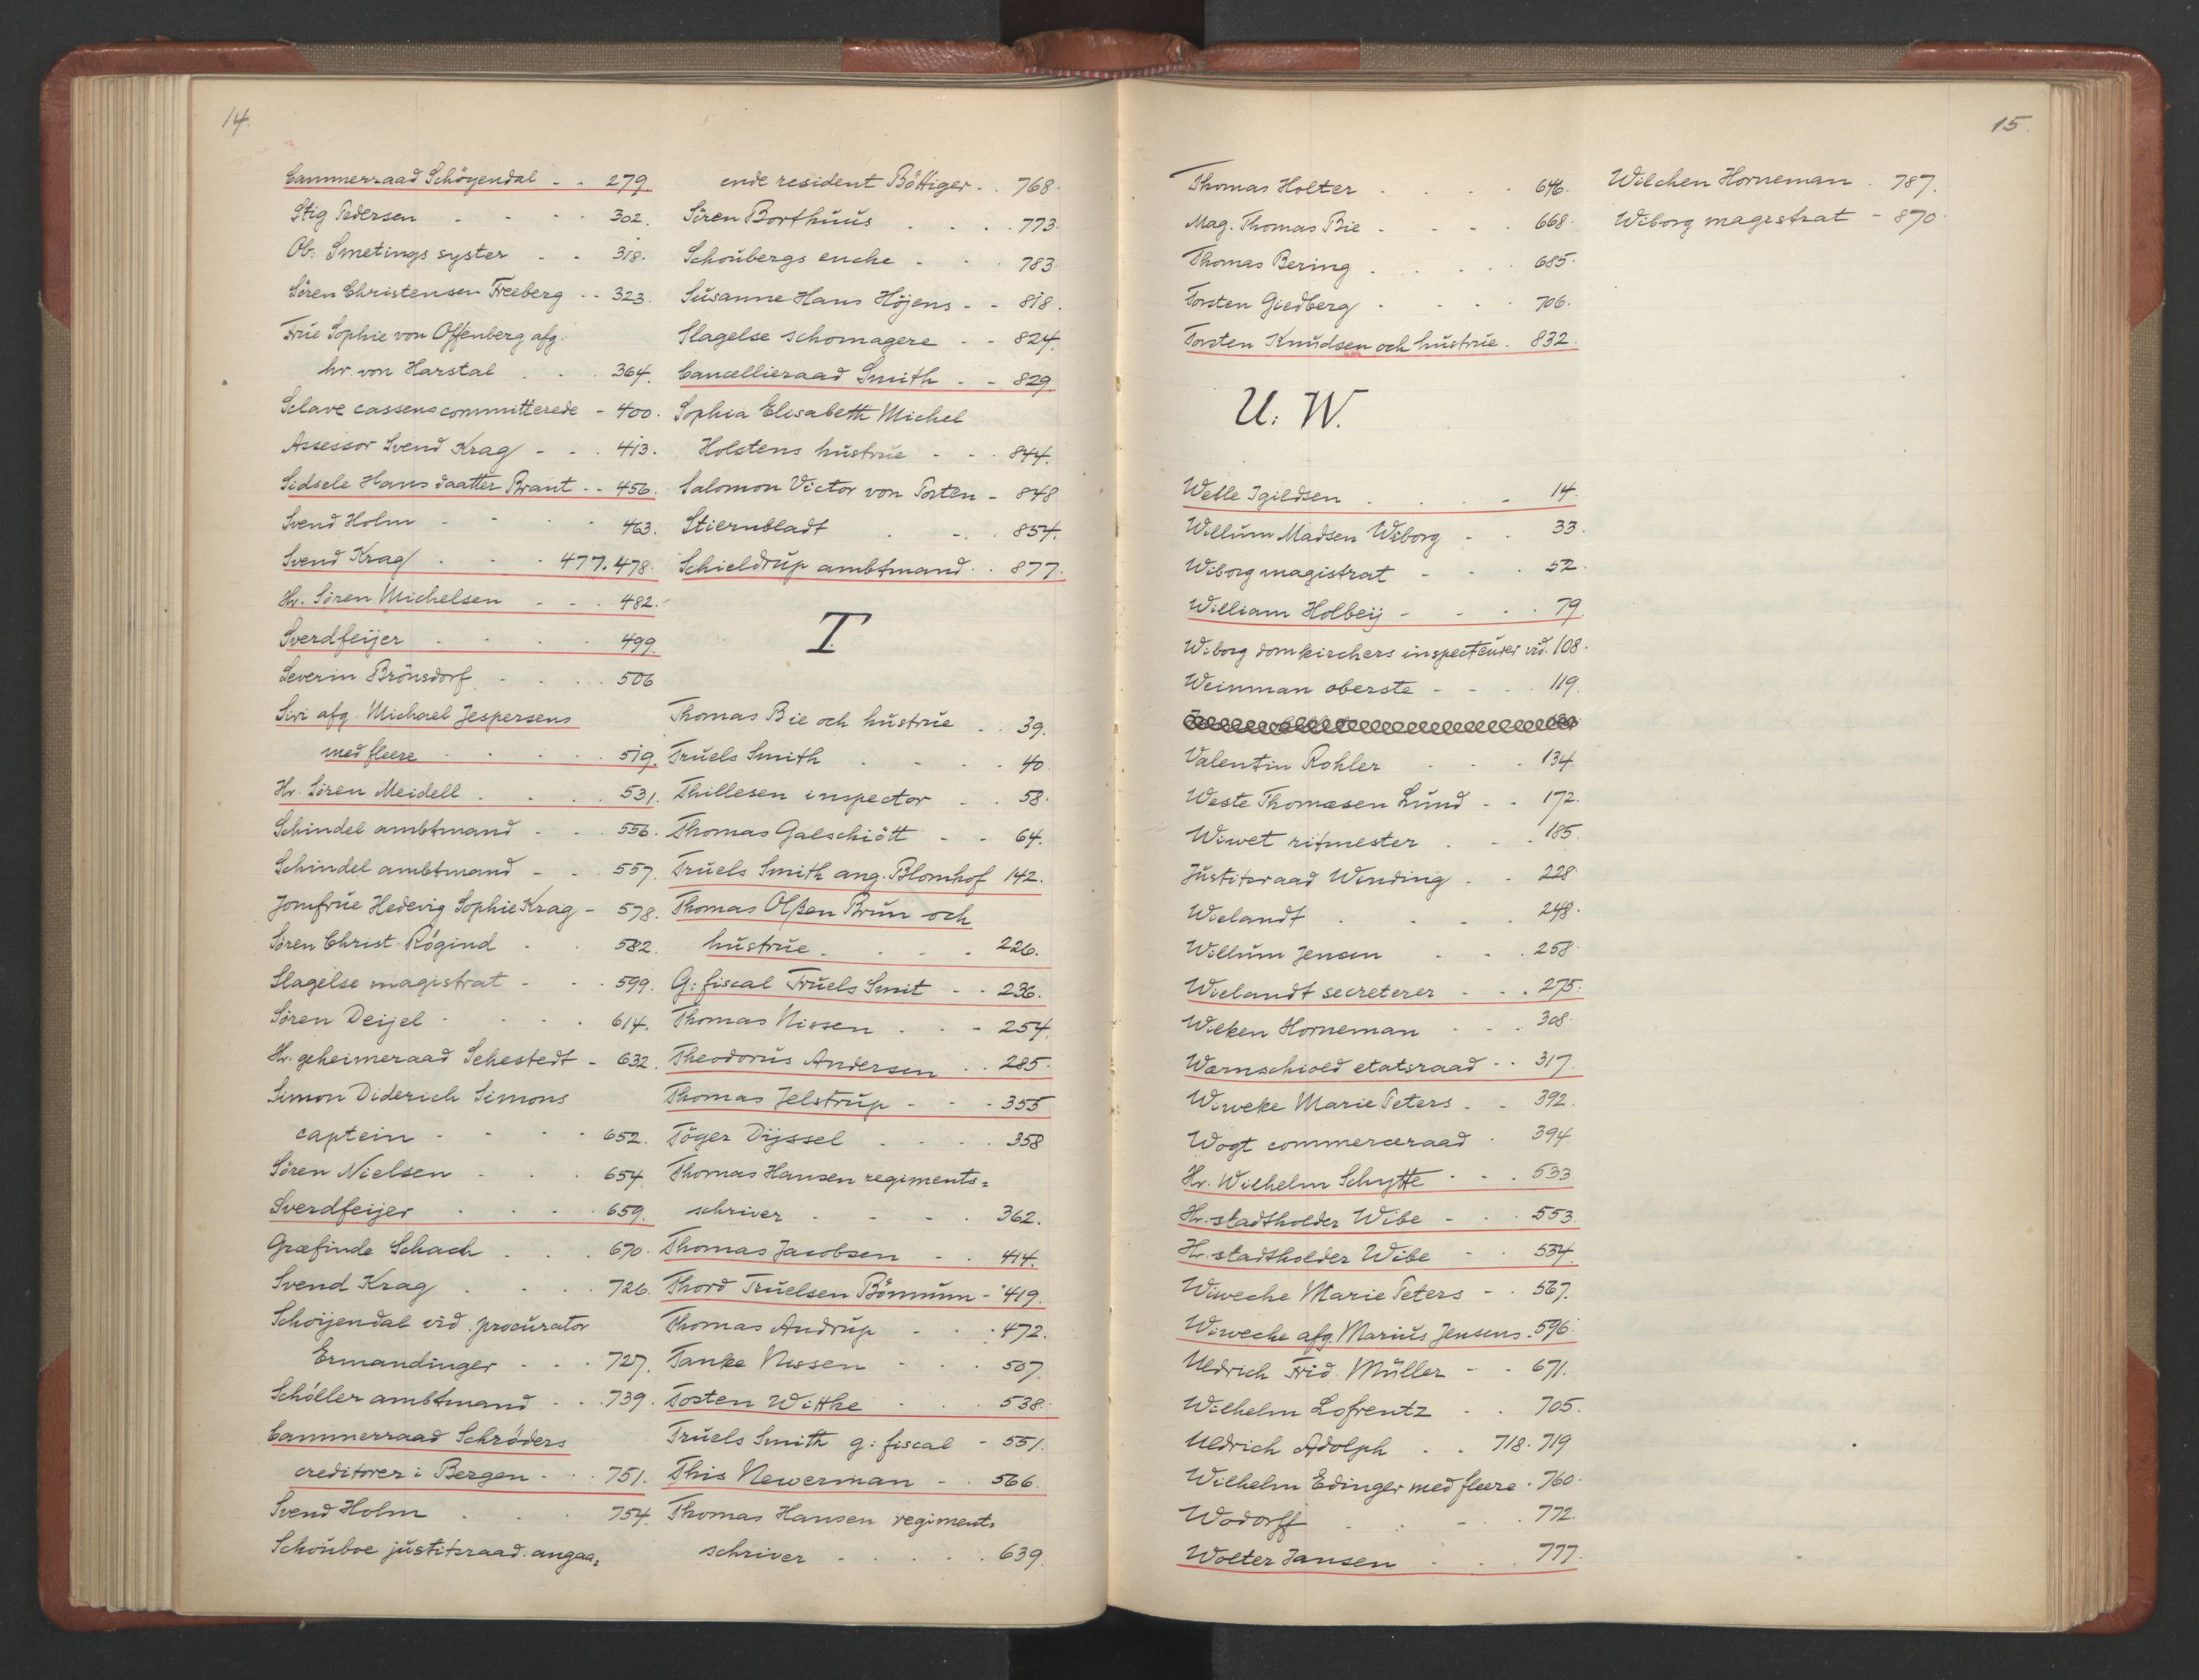 14.
Cammerraad Schöyendal - - 279.
Stig Pedersen - - - - 302.
Ob: Smetings syster - - 318.
Sören Christensen Freeberg - - 323.
Frue Sophie von Offenberg afg.
hr. von Harstal . . . 364.
Sclave cassens committerede - 400.
Assessor Svend Krag - - . 413.
Sidsele Hans daatter Brant - - 456.
Svend Holm - - - 463.
Svend Krag . - - 477. 478.
Hr. Sören Michelsen - - . 482.
Sverdfeijer . - . . 499.
Severin Brönsdorf - . . . 506
Siri afg. Michael Jespersens
med fleere . . . . 519.
Hr. Sören Meidell . . . . 531.
Schindel ambtmand - . . 556.
Schindel ambtmand - - . 557.
Jomfrue Hedevig Sophie Krag - 578.
Sören Christ. Rögind - . 582.
Slagelse magistrat - . . 599.
Sören Deijel - . . . 614.
Hr. geheimeraad Sehestedt - 632.
Simon Diderich Simons
captein - - . . 652.
Sören Nielsen . . . 654.
Sverdfeijer . . . . 659.
Græfinde Schach . . . 670.
Svend Krag . . . . 726.
Schöijendal vid. procurator
Ermandinger - . . 727.
Schöller ambtmand - . . 739.
Cammerraad Schröders
creditorer i Bergen - . . 751.
Svend Holm . . . 754.
Schouboe justitsraad. angaa=
ende resident Böttiger . . 768.
Sören Borthuus . . . . 773.
Schoubergs enche - . . 783.
Susanne Hans Höjens - - 818.
Slagelse schomagere - - 824.
Cancellieraad Smith - - 829.
Sophia Elisabeth Michel
Holstens hustrue - - . 844.
Salomon Victor von Posten - 848
Stiernbladt . - . . 854.
Schieldrup ambtmand . . 877.
T.
Thomas Bie och hustrue . . 39.
Truels Smith . . - . 40.
Thillesen inspector - . 58.
Thomas Galschiött - - 64.
Truels Smith ang. Blomhof 142.
Thomas Olsen Brun och
hustrue . . . . 226.
G: fiscal Truels Smit - . 236.
Thomas Nissen . . - 254.
Theodorus Andersen . . 285.
Thomas Jelstrup - - . 355
Töger Dijssel . . . . 358
Thomas Hansen regiments=
schriver . - - . 362.
Thomas Jacobsen - . 414.
Thord Truelsen Bönmum - 419.
Thomas Andrup - - . 472.
Tanke Nissen - . . 507.
Tosten Witthe - . . 538.
Truels Smith g: fiscal - 551.
This Newerman - . 566.
Thomas Hansen regiments
schriver . . . . 639.
15.
Thomas Holter . . . . 646.
Mag. Thomas Bie - - . . 668.
Thomas Bering . . . . 685.
Torsten Giedberg - - . . 706.
Torsten Knudsen och hustrue . 832.
U. W.
Welle Igildsen . . . - 14.
Willum Madsen Wiborg - . 33.
Wiborg magistrat - - . 52.
William Holbeij - - - . 79.
Wiborg domkirchers inspecteurer vid. 108.
Weinman oberste - - . 119.
Valentin Rohler . . . 134.
Weste Thomæsen Lund - - 172.
Wiwet ritmester . - . 185.
Justitsraad Winding . - 228.
Wielandt . . . . 248.
Willum Jensen - . . 258.
Wielandt secreterer - - . 275.
Wilken Horneman - . . 308.
Warnschiold etatsraad - - 317.
Wiweke Marie Peters . - 392.
Wogt commerceraad . 394.
Hr. Wilhelm Schytte - . . 533.
Hr. stadtholder Wibe - . . 553.
Hr. stadtholder Wibe - . 534.
Wiweche Marie Peters - . 567.
Wiweche afg. Marius Jensens . 596.
Uldrich Frid. Müller - - 671.
Wilhelm Lofrentz . . 705.
Uldrich Adolph . . 718. 719
Wilhelm Edinger med fleere . 760.
Wodorff . . - . 772.
Wolter Jansen . . . 777.
Wilchen Horneman . 787.
Wiborg magistrat - 870.